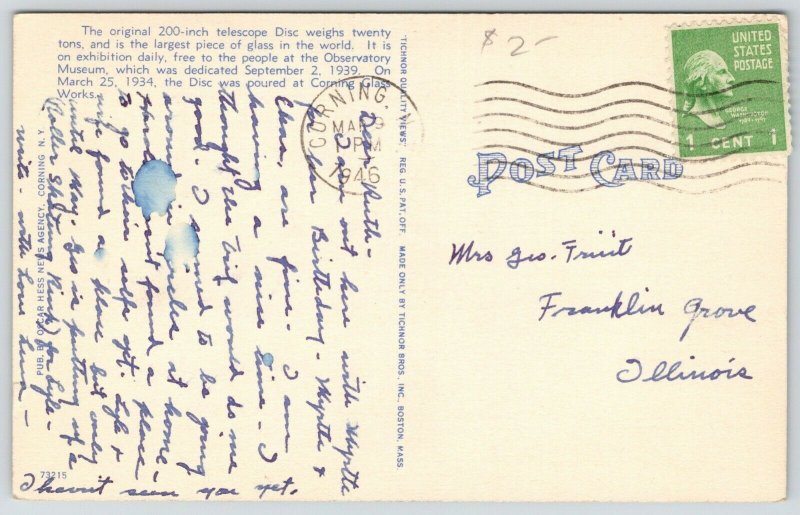 The original 200-inch telescope Disc weighs twenty
tons, and is the largest piece of glass in the world. It is
on exhibition daily, free to the people at the Observatory
Museum, which was dedicated September 2, 1939. On
March 25, 1934, the Disc was poured at Corning Glass
Works.
Dear Ruth-
I am out here with Myrtle
for her Birthday- Myrtle &
Chas, are fine- I am
having a nice time- I
thought the trip would do me
good. I seemed to be going
around in circles at home-
found a place
to go to their self yet. Lyle &
wife found a place but only
until May. Geo is putting up a
(Roller Skating Rink) for Lyle-
write- with Love
I haven't seen you yet.
PUB. BY OSCAR HESS NEWS AGENCY, CORNING N.Y.
73215
"TICHNOR QUALITY VIEWS" REG. U.S. PAT. OFF. MADE ONLY BY TICHNOR BROS. INC., BOSTON, MASS.
$2-
CORNING, N.
MAR 9
PM
1946
UNITED
STATES
POSTAGE
GEORGE
WASHINGTON
1 CENT 1
POST CARD
Mrs Geo. Fruit
Franklin Grove
Illinois